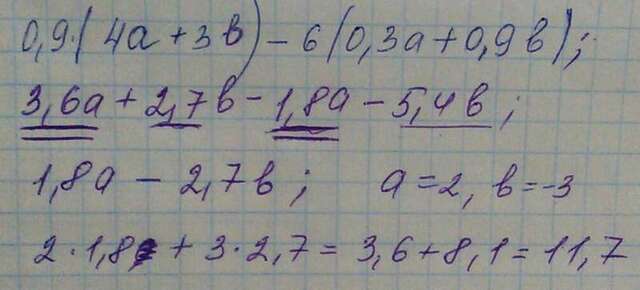 0,9·(4а+3в)-6(0,3а+0,9в);
3,6а+2,7в-1,8а-5,4в;
1,8а-2,7в; а=2, в=-3
2·1,8+3·2,7=3,6+8,1=11,7